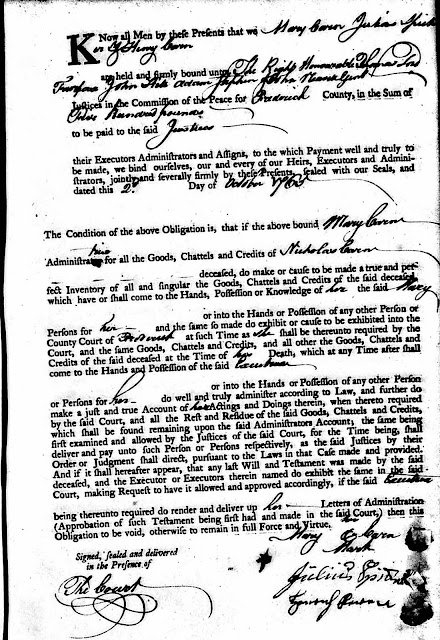 KNow all Men by these Presents that we Mary Coren Julius
& Henry Coren
are held and firmly bound unto The Right Honourable Thomas Lord
Fairfax John Adam Stephen & John Gent
Justices in the Commission of the Peace for Frederick County, in the Sum of
Hundred pounds
to be paid to the said Justices
their Executors Administrators and Assigns, to the which Payment well and truly to
be made, we bind ourselves, our and every of our Heirs, Executors and Admini-
strators, jointly and severally firmly by these Presents, sealed with our Seals, and
dated this 2d Day of October 1765
The Condition of the above Obligation is, that if the above bound Mary Coren
Administratrix for all the Goods, Chattels and Credits of Nicholas Coren
deceased, do make or cause to be made a true and per-
fect Inventory of all and singular the Goods, Chattels and Credits of the said deceased,
which have or shall come to the Hands, Possession or Knowledge of her the said Mary
or into the Hands or Possession of any other Person or
Persons for her and the same so made do exhibit or cause to be exhibited into the
County Court of Frederick at such Time as she shall be thereunto required by the
Court, and the same Goods, Chattels and Credits, and all other the Goods, Chattels and
Credits of the said deceased at the Time of her Death, which at any Time after shall
come to the Hands and Possession of the said
or into the Hands or Possession of any other Person
or Persons for her do well and truly administer according to Law, and further do
make a just and true Account of her Actings and Doings therein, when thereto required
by the said Court, and all the Rest and Residue of the said Goods, Chattels and Credits,
which shall be found remaining upon the said Administrators Account, the same being
first examined and allowed by the Justices of the said Court, for the Time being, shall
deliver and pay unto such Person or Persons respectively, as the said Justices by their
Order or Judgment shall direct, pursuant to the Laws in that Case made and provided.
And if it shall hereafter appear, that any last Will and Testament was made by the said
deceased, and the Executor or Executors therein named do exhibit the same in the said
Court, making Request to have it allowed and approved accordingly, if the said
being thereunto required do render and deliver up her Letters of Administration
(Approbation of such Testament being first had and made in the said Court) then this
Obligation to be void, otherwise to remain in full Force and Virtue.
her
Mary Coren
Mark
Signed, sealed and delivered
in the Presence of
The Court
Julius